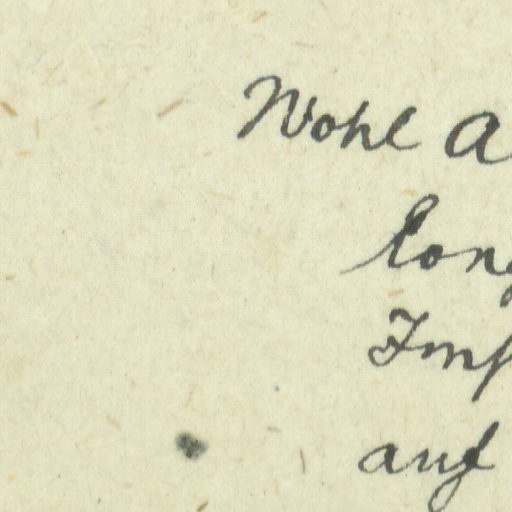 Wohl A
long
Imp
auf